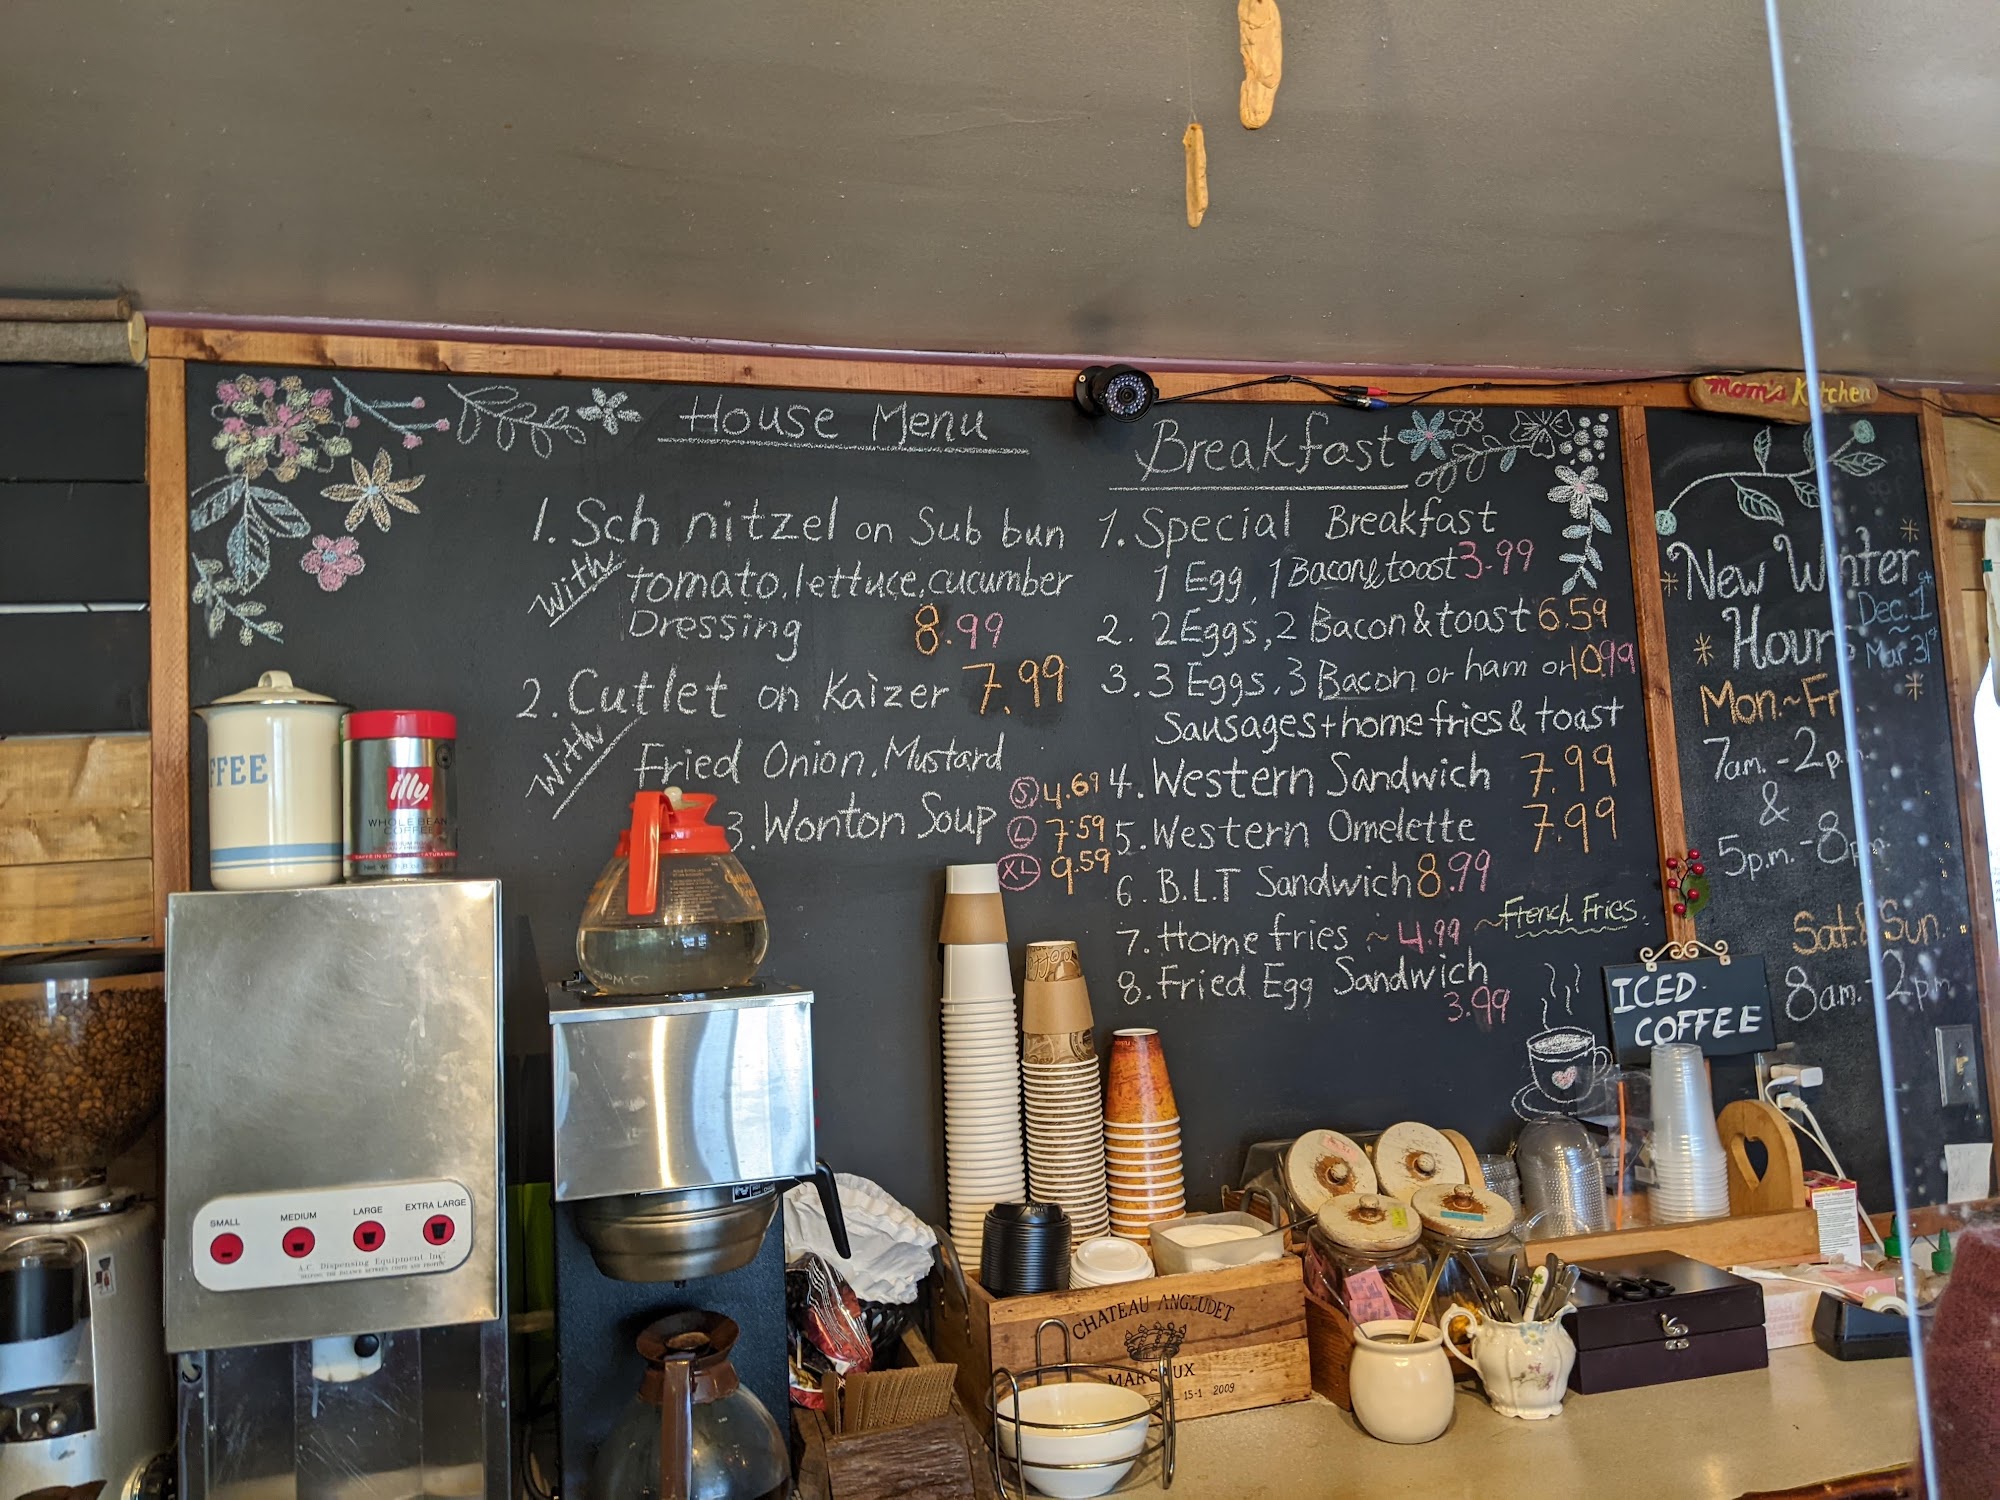 House Menu
1. Schnitzel on Sub bun
With tomato, lettuce, cucumber
Dressing 8.99
2. Cutlet on Kaizer 7.99
With
Fried Onion, Mustard
3. Wonton Soup
S 4.69
L 7.59
XL 9.59
Breakfast
1. Special Breakfast
1 Egg, 1 Bacon & toast 3.99
2. 2 Eggs, 2 Bacon & toast 6.59
3. 3 Eggs, 3 Bacon or ham or 10.99
Sausages + home fries & toast
4. Western Sandwich 7.99
5. Western Omelette 7.99
6. B.L.T Sandwich 8.99
7. Home fries ~ 4.99 ~ French Fries.
8. Fried Egg Sandwich
3.99
Mom's Kitchen
New Winter
Hour
Dec. 1st
~
Mar. 31st
Mon. ~ Fr
7am. - 2p.
&
5p.m. - 8pm.
Sat. & Sun.
8am. - 2pm
ICED
COFFEE
FFEE
illy
WHOLE BEAN
COFFEE
SMALL
MEDIUM
LARGE
EXTRA LARGE
A.C. Dispensing Equipment Inc.
CHATEAU ANGLUDET
MARGAUX
15-1 2009